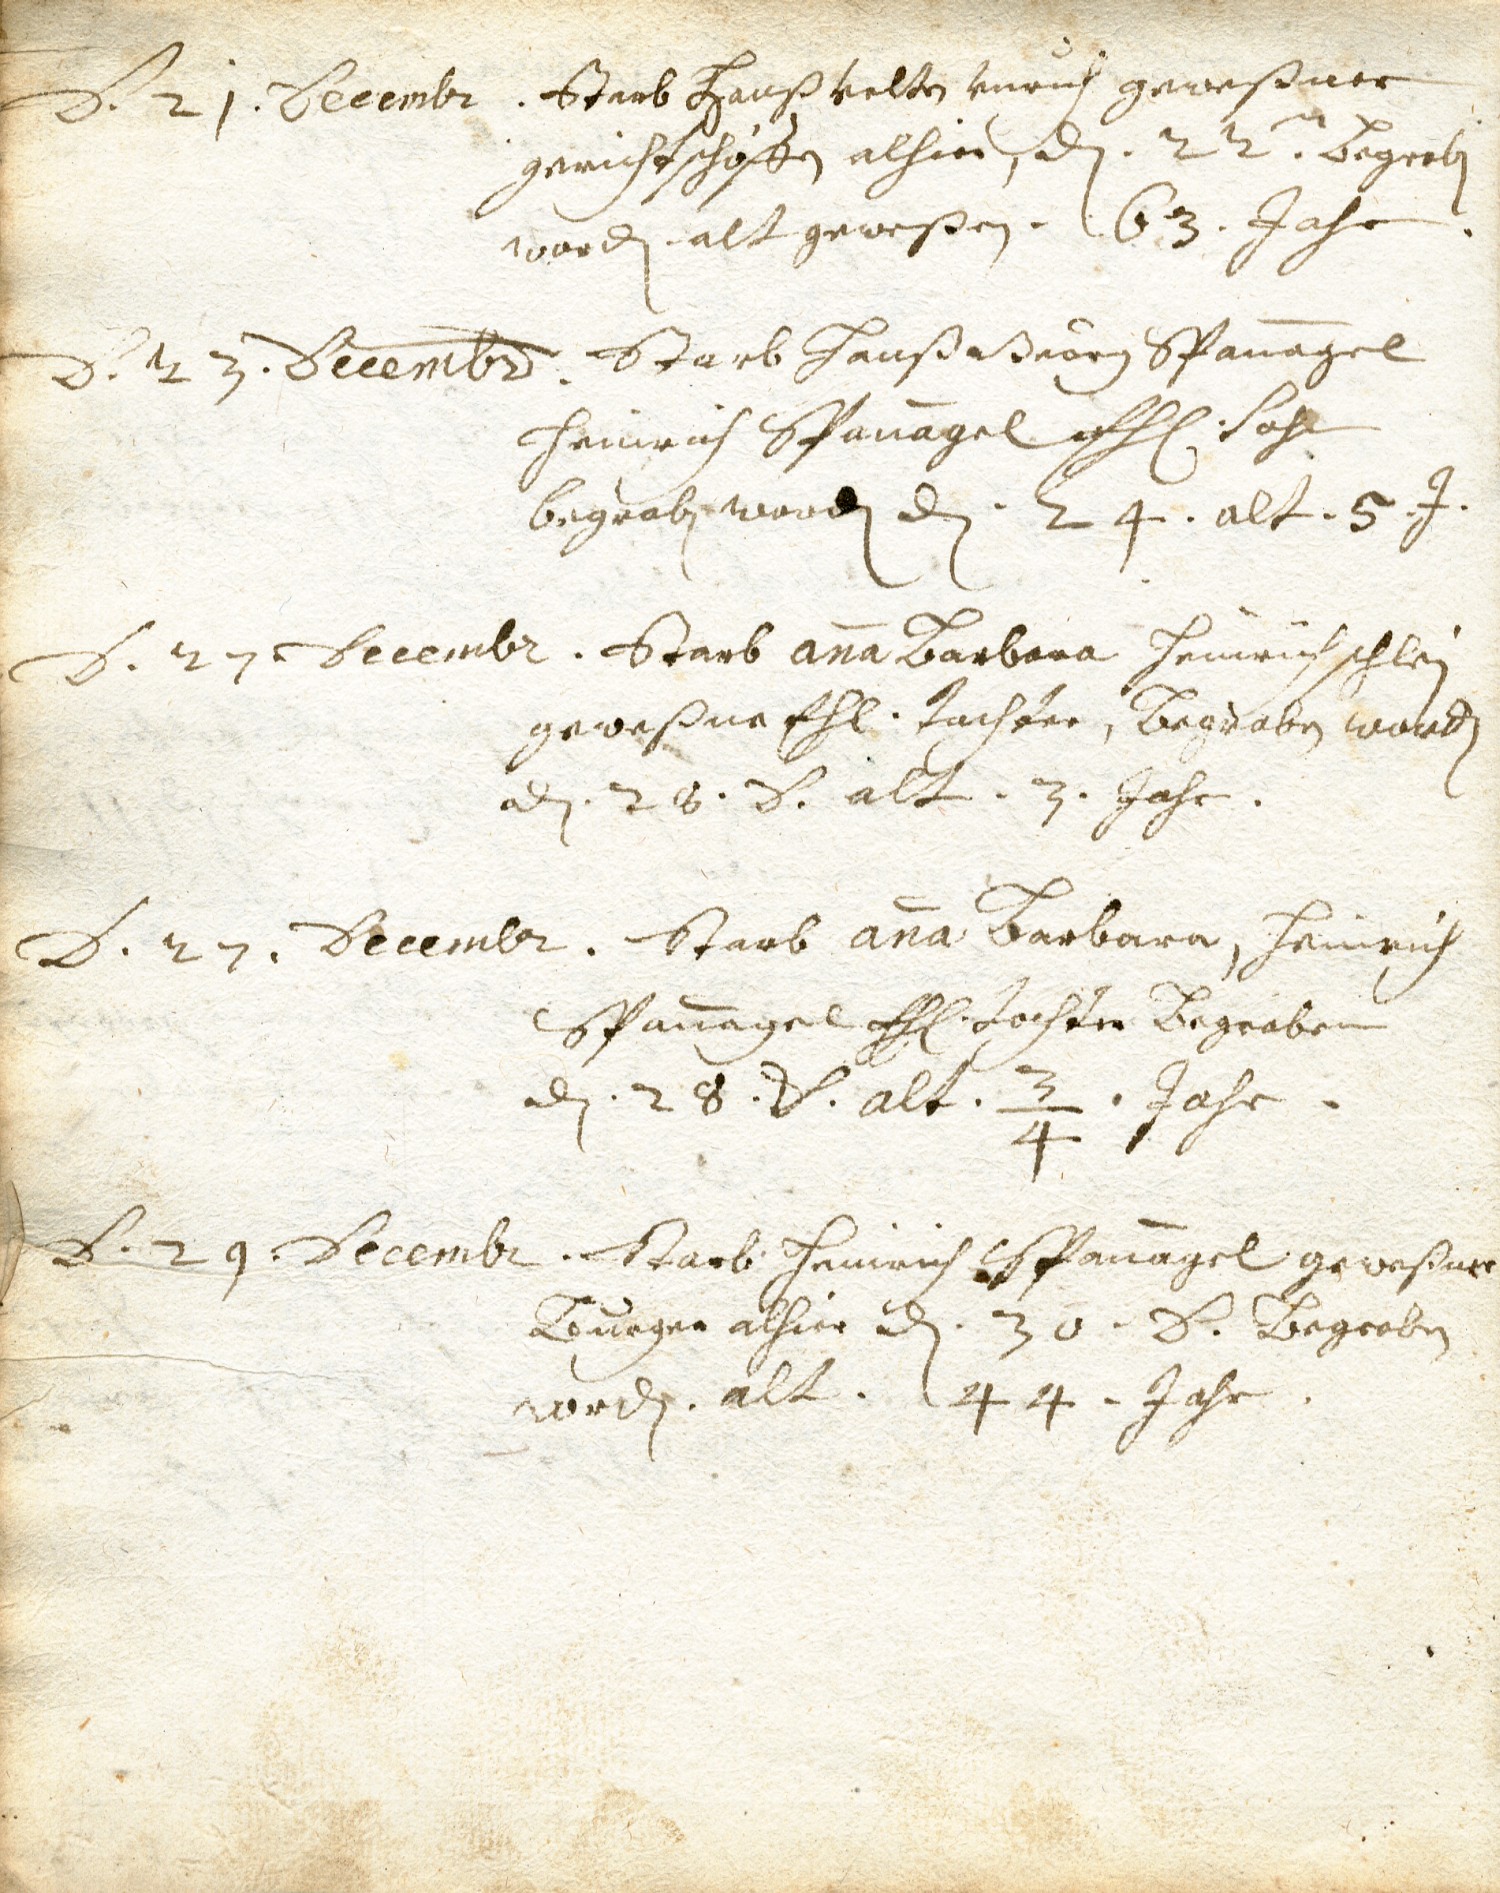 D. 21. Decembr. Starb Hanß Velten geweßner
gerichtschöffen alhier, dn. 22ten. Begrabn
wordn. alt geweßen. 63. Jahr.
D. 23. Decembr. Starb Hanß Geörg Spañagel
Heinrich Spañagel Ehl. Sohn
begrabn wordn dn. 24. alt. 5. J.
D. 27. Decembr. Starb aña Barbara Heinrich
geweßne Ehl. Tochter, Begraben wordn
dn. 28. D. alt. 3. Jahr.
D. 27. Decembr. Starb aña Barbara, Heinrich
Spañagel Ehl. Tochter Begraben
dn. 28. D. alt. 3/4. Jahr.
D. 29. Decembr. Starb Heinrich Spañagel geweßner
Burger alhier dn. 30. D. Begraben
wordn. alt. 44. Jahr.